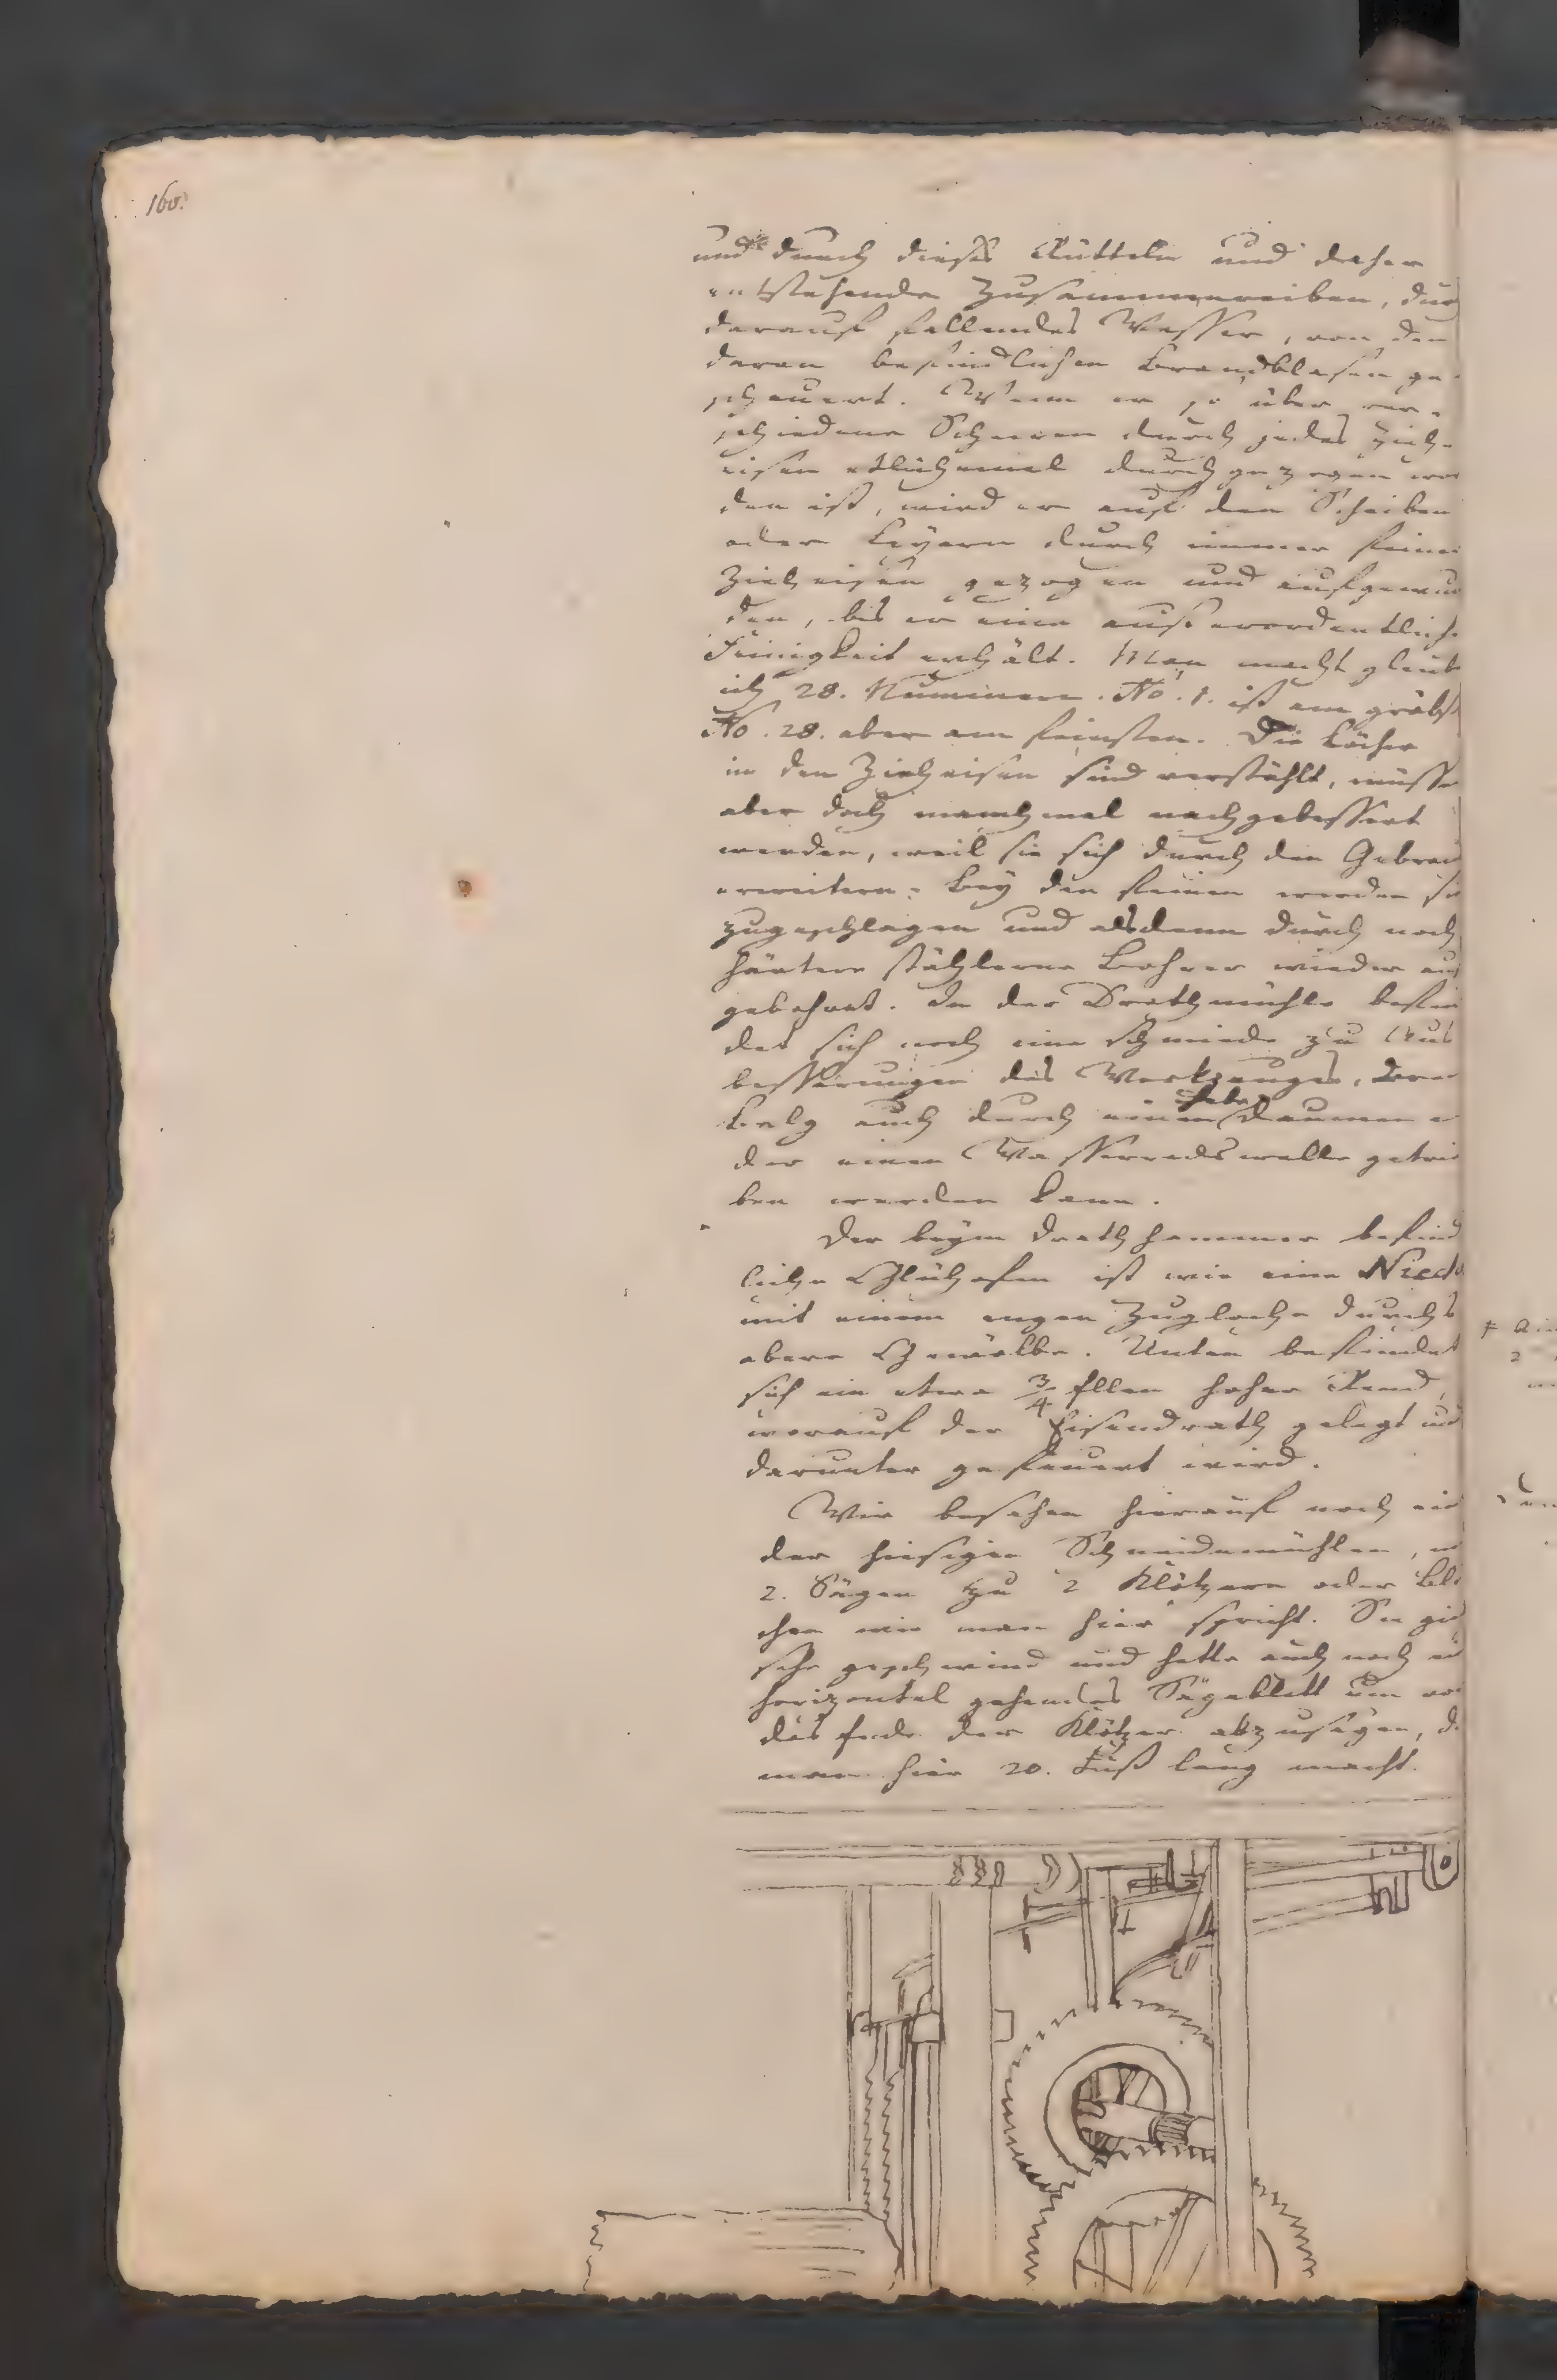 160.
und durch dieses Rütteln und daher
entstehende Zusammenreiben, durch
darauf fallendes Wasser, von den
daran befindlichen Brandblasen ge-
scheuert. Wenn er so über ver-
schiedene Scheeren durch jedes Zieh-
eisen etlichemal durchgezogen wor
den ist, wird er auf den Scheiben
oder Leyern durch immer feine
Zieheisen gezogen und aufgewun
den, bis er eine ausserordentliche
Feinigkeit erhält. Man macht glaub
ich 28. Nummern. No. 1. ist am gröbst
No. 28. aber am feinsten. Die Löcher
in den Zieheisen sind verstählt, müsse
aber doch manchmal nachgebessert
werden, weil sie sich durch den Gebrau
erweitern. Bey den feinen werden sie
zugeschlagen und alsdenn durch noch
härtere stählerne Bohrer wieder aus
gebohret. In der Drathmühle befin
det sich noch eine Schmiede zu Aus
besserungen des Werkzeuges, deren
Balg auch durch einen Daumen o
der einen Wasserradswelle getrie
ben werden kann.
Der beym Drathhammer befind
liche Glühofen ist wie eine Niech
mit einem engen Zugloche durchs
obere Gewölbe. Unten befindet
sich ein etwa 3/4 Ellen hoher Rand,
worauf der Eisendrath gelegt und
darunter gefeuert wird.
Wir besahen hierauf noch ein
der hiesigen Schneidemühlen, m
2. Sägen zu 2 Klötzern oder Blö
chen wie man hier spricht. Sie gie
sehr geschwind und hatte auch noch ei
horizontal gehendes Sägeblatt um vo
das Ende der Klötzer abzusägen, d
man hier 20. Fuß lang macht.